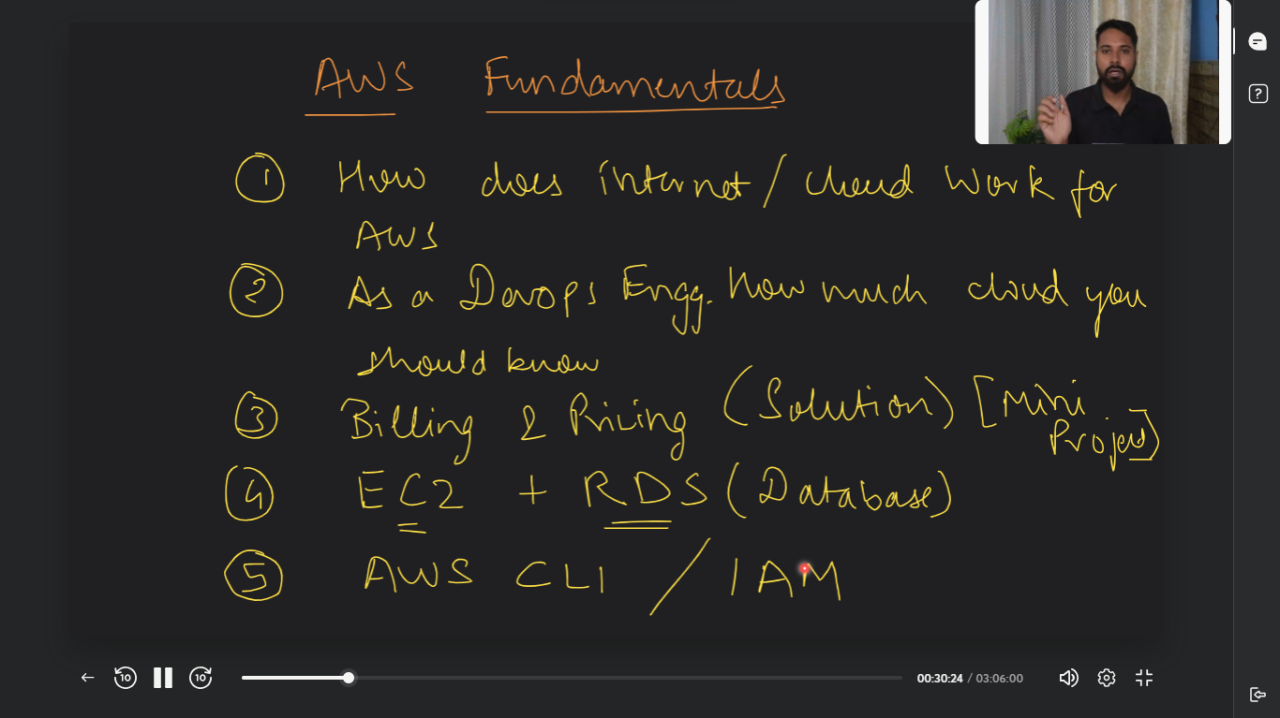 AWS Fundamentals
① How does internet / cloud work for
AWS
② As a Devops Engg. How much cloud you
should know
③ Billing & Pricing (Solution) [Mini
Project]
④ EC2 + RDS (Database)
⑤ AWS CLI / IAM
10
10
00:30:24 / 03:06:00
?